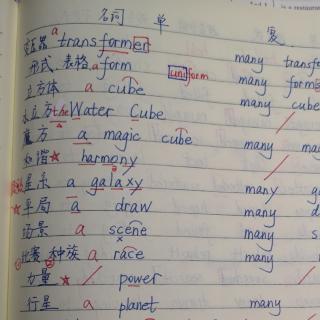 is a restaurant
名词 单 复
变压器 a transformer many transfo
形式, 表格 a form uniform many form
立方体 a cube many cube
水立方 the Water Cube
魔方 a magic cube many mag
和谐 ★ harmony
星系 a galaxy many g
★ 平局 a draw many d
场景 a scene many s
① 比赛 ② 种族 a race many
力量 ★ power
行星 a planet many